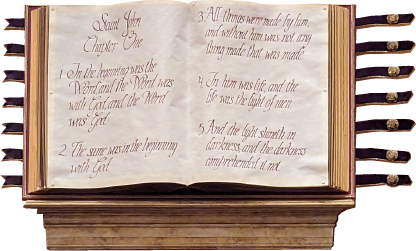 Saint John
Chapter One
1. In the beginning was the
Word, and the Word was
with God, and the Word
was God.
2. The same was in the beginning
with God.
3. All things were made by him,
and without him was not any
thing made that was made.
4. In him was life, and the
life was the light of men.
5. And the light shineth in
darkness, and the darkness
comprehended it not.